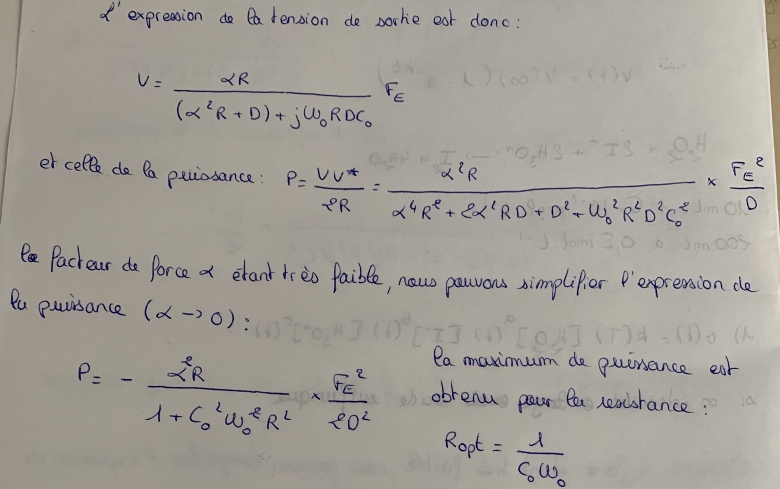 L'expression de la tension de sortie est donc :
V = αR / ((α²R + D) + jω₀RDC₀) F_E
et celle de la puissance : P = VV* / 2R = α²R / (α⁴R² + 2α²RD + D² + ω₀²R²D²C₀²) × F_E² / D
le facteur de force α étant très faible, nous pouvons simplifier l'expression de
la puissance (α → 0) :
P = - α²R / (1 + C₀²ω₀²R²) × F_E² / 2D²
la maximum de puissance est
obtenu pour la resistance :
Ropt = 1 / C₀ω₀